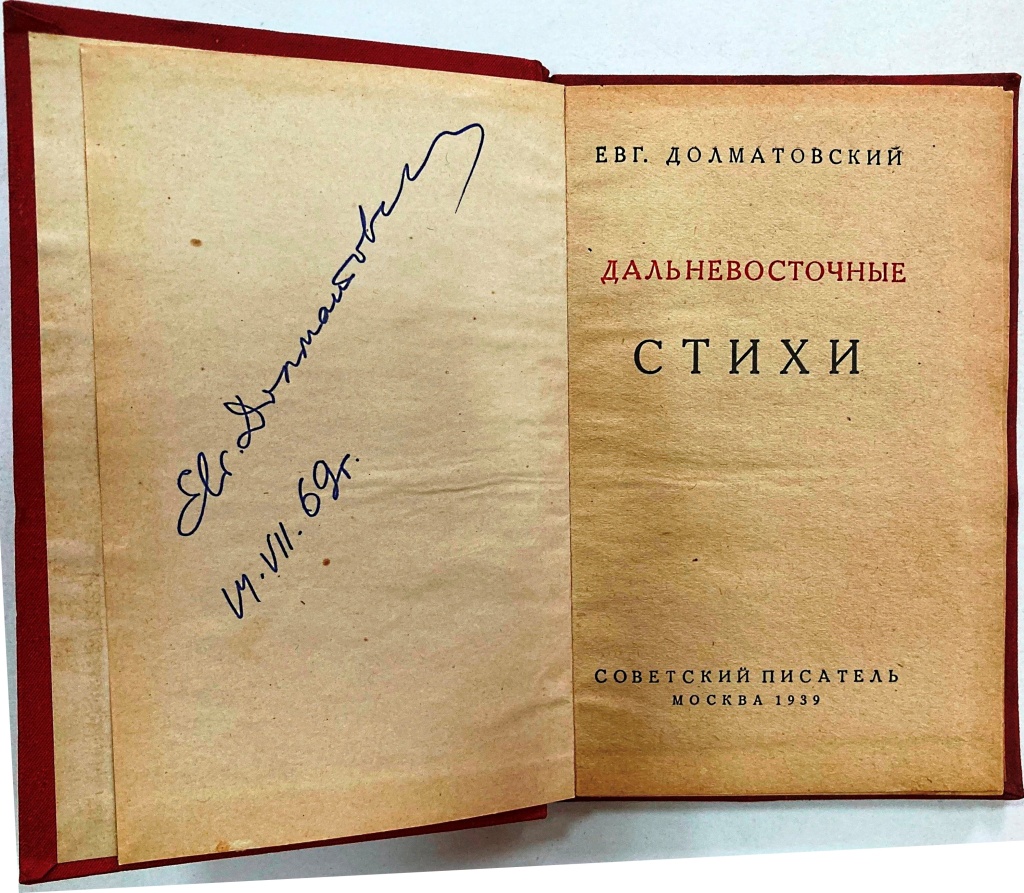 Евг. Долматовский
14.VII.69г.
ЕВГ. ДОЛМАТОВСКИЙ
ДАЛЬНЕВОСТОЧНЫЕ
СТИХИ
СОВЕТСКИЙ ПИСАТЕЛЬ
МОСКВА 1939